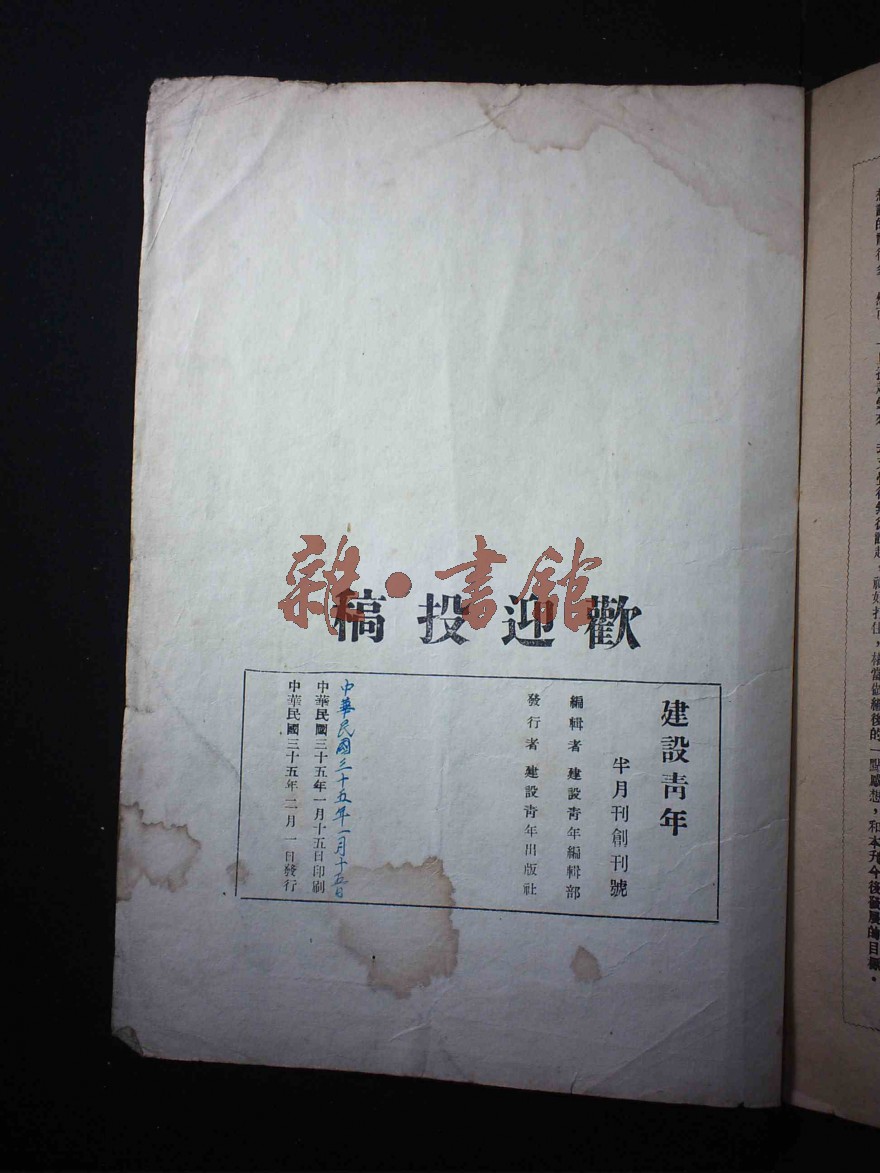 歡迎投稿
雜·書館
建設青年
半月刊創刊號
編輯者 建設青年編輯部
發行者 建設青年出版社
中華民國三十五年一月十五日
中華民國三十五年一月十五日印刷
中華民國三十五年二月一日發行